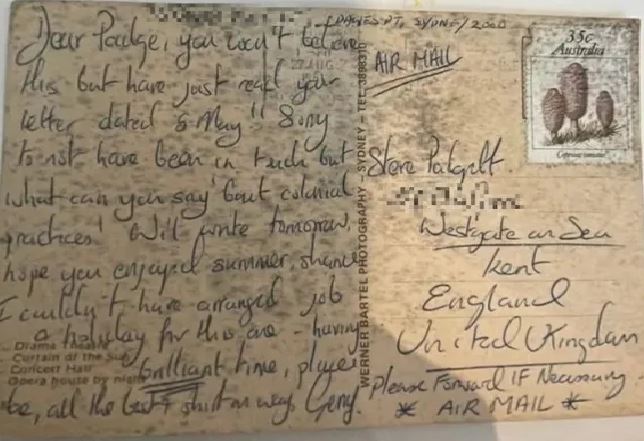 DAWES PT, SYDNEY/2000
Dear Padge, you won't believe
this but have just read your
letter dated 5 May!! Sorry
to not have been in touch but
what can you say 'bout colonial
practices! Will write tomorrow,
hope you enjoyed summer, shame
I couldn't have arranged job
a holiday for this one - having
brilliant time, player
be, all the best + shirt on way Gerry.
Drama Theatre
Curtain of the Sun
Concert Hall
Opera house by night
WERNER BARTEL PHOTOGRAPHY - SYDNEY - TEL:
AIR MAIL
35c
Australia
Coprinus comatus
Steve
Westgate on Sea
Kent
England
United Kingdom
Please Forward IF Necessary
* AIR MAIL *